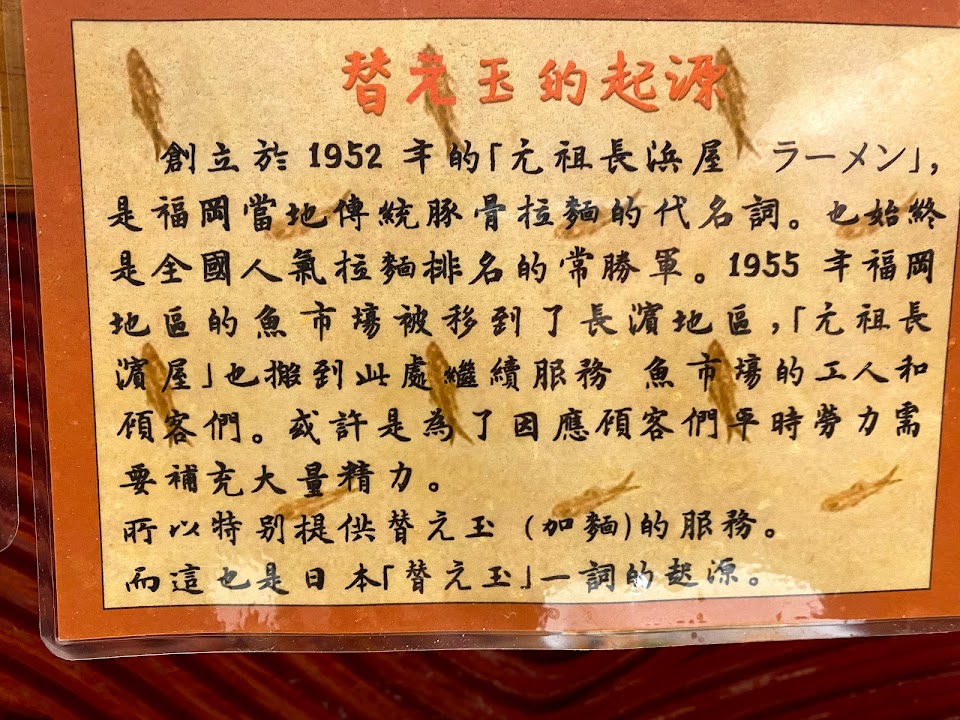 替元玉的起源
創立於1952年的「元祖長浜屋 ラーメン」,
是福岡當地傳統豚骨拉麵的代名詞。也始終
是全國人氣拉麵排名的常勝軍。1955年福岡
地區的魚市場被移到了長濱地區,「元祖長
濱屋」也搬到此處繼續服務 魚市場的工人和
顧客們。或許是為了因應顧客們平時勞力需
要補充大量精力。
所以特別提供替元玉(加麵)的服務。
而這也是日本「替元玉」一詞的起源。